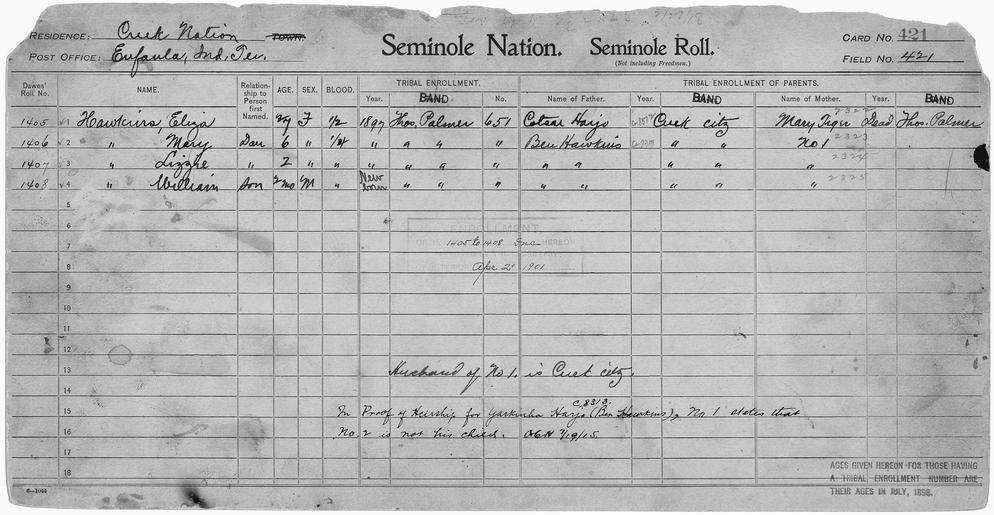 RESIDENCE: Creek Nation TOWN.
POST OFFICE: Eufaula, Ind. Ter.
Seminole Nation. Seminole Roll.
(Not including Freedmen.)
CARD NO. 421
FIELD NO. 421
Dawes' Roll No. NAME. Relationship to Person first Named. AGE. SEX. BLOOD. TRIBAL ENROLLMENT. TRIBAL ENROLLMENT OF PARENTS.
Year. BAND No. Name of Father. Year. BAND Name of Mother. Year. BAND
2322
1405 1 Hawkins, Eliza 29 F 1/2 1897 Thos. Palmer 651 Cotsar Harjo Creek city Mary Tiger Dead Thos. Palmer
2323
1406 2 " Mary Dau 6 " 1/4 " " " Ben Hawkins " " No 1
2324
1407 3 " Lizzie " 2 " " " " " " " " " "
2325
1408 4 " William Son 2 mo M " New born " " " " " " "
5
6
ENROLLMENT
7 1405 to 1408 Inc HEREON
8 Apr 2" 1901
9
10
11
12
13 Husband of No 1. is Creek city.
14
C. 8313
15 In Proof of Heirship for Yarkinha Harjo (Ben Hawkins), No 1 states that
16 No. 2 is not his child. 7/19/15.
17
18
6-1044
AGES GIVEN HEREON FOR THOSE HAVING
A TRIBAL ENROLLMENT NUMBER ARE
THEIR AGES IN JULY, 1898.